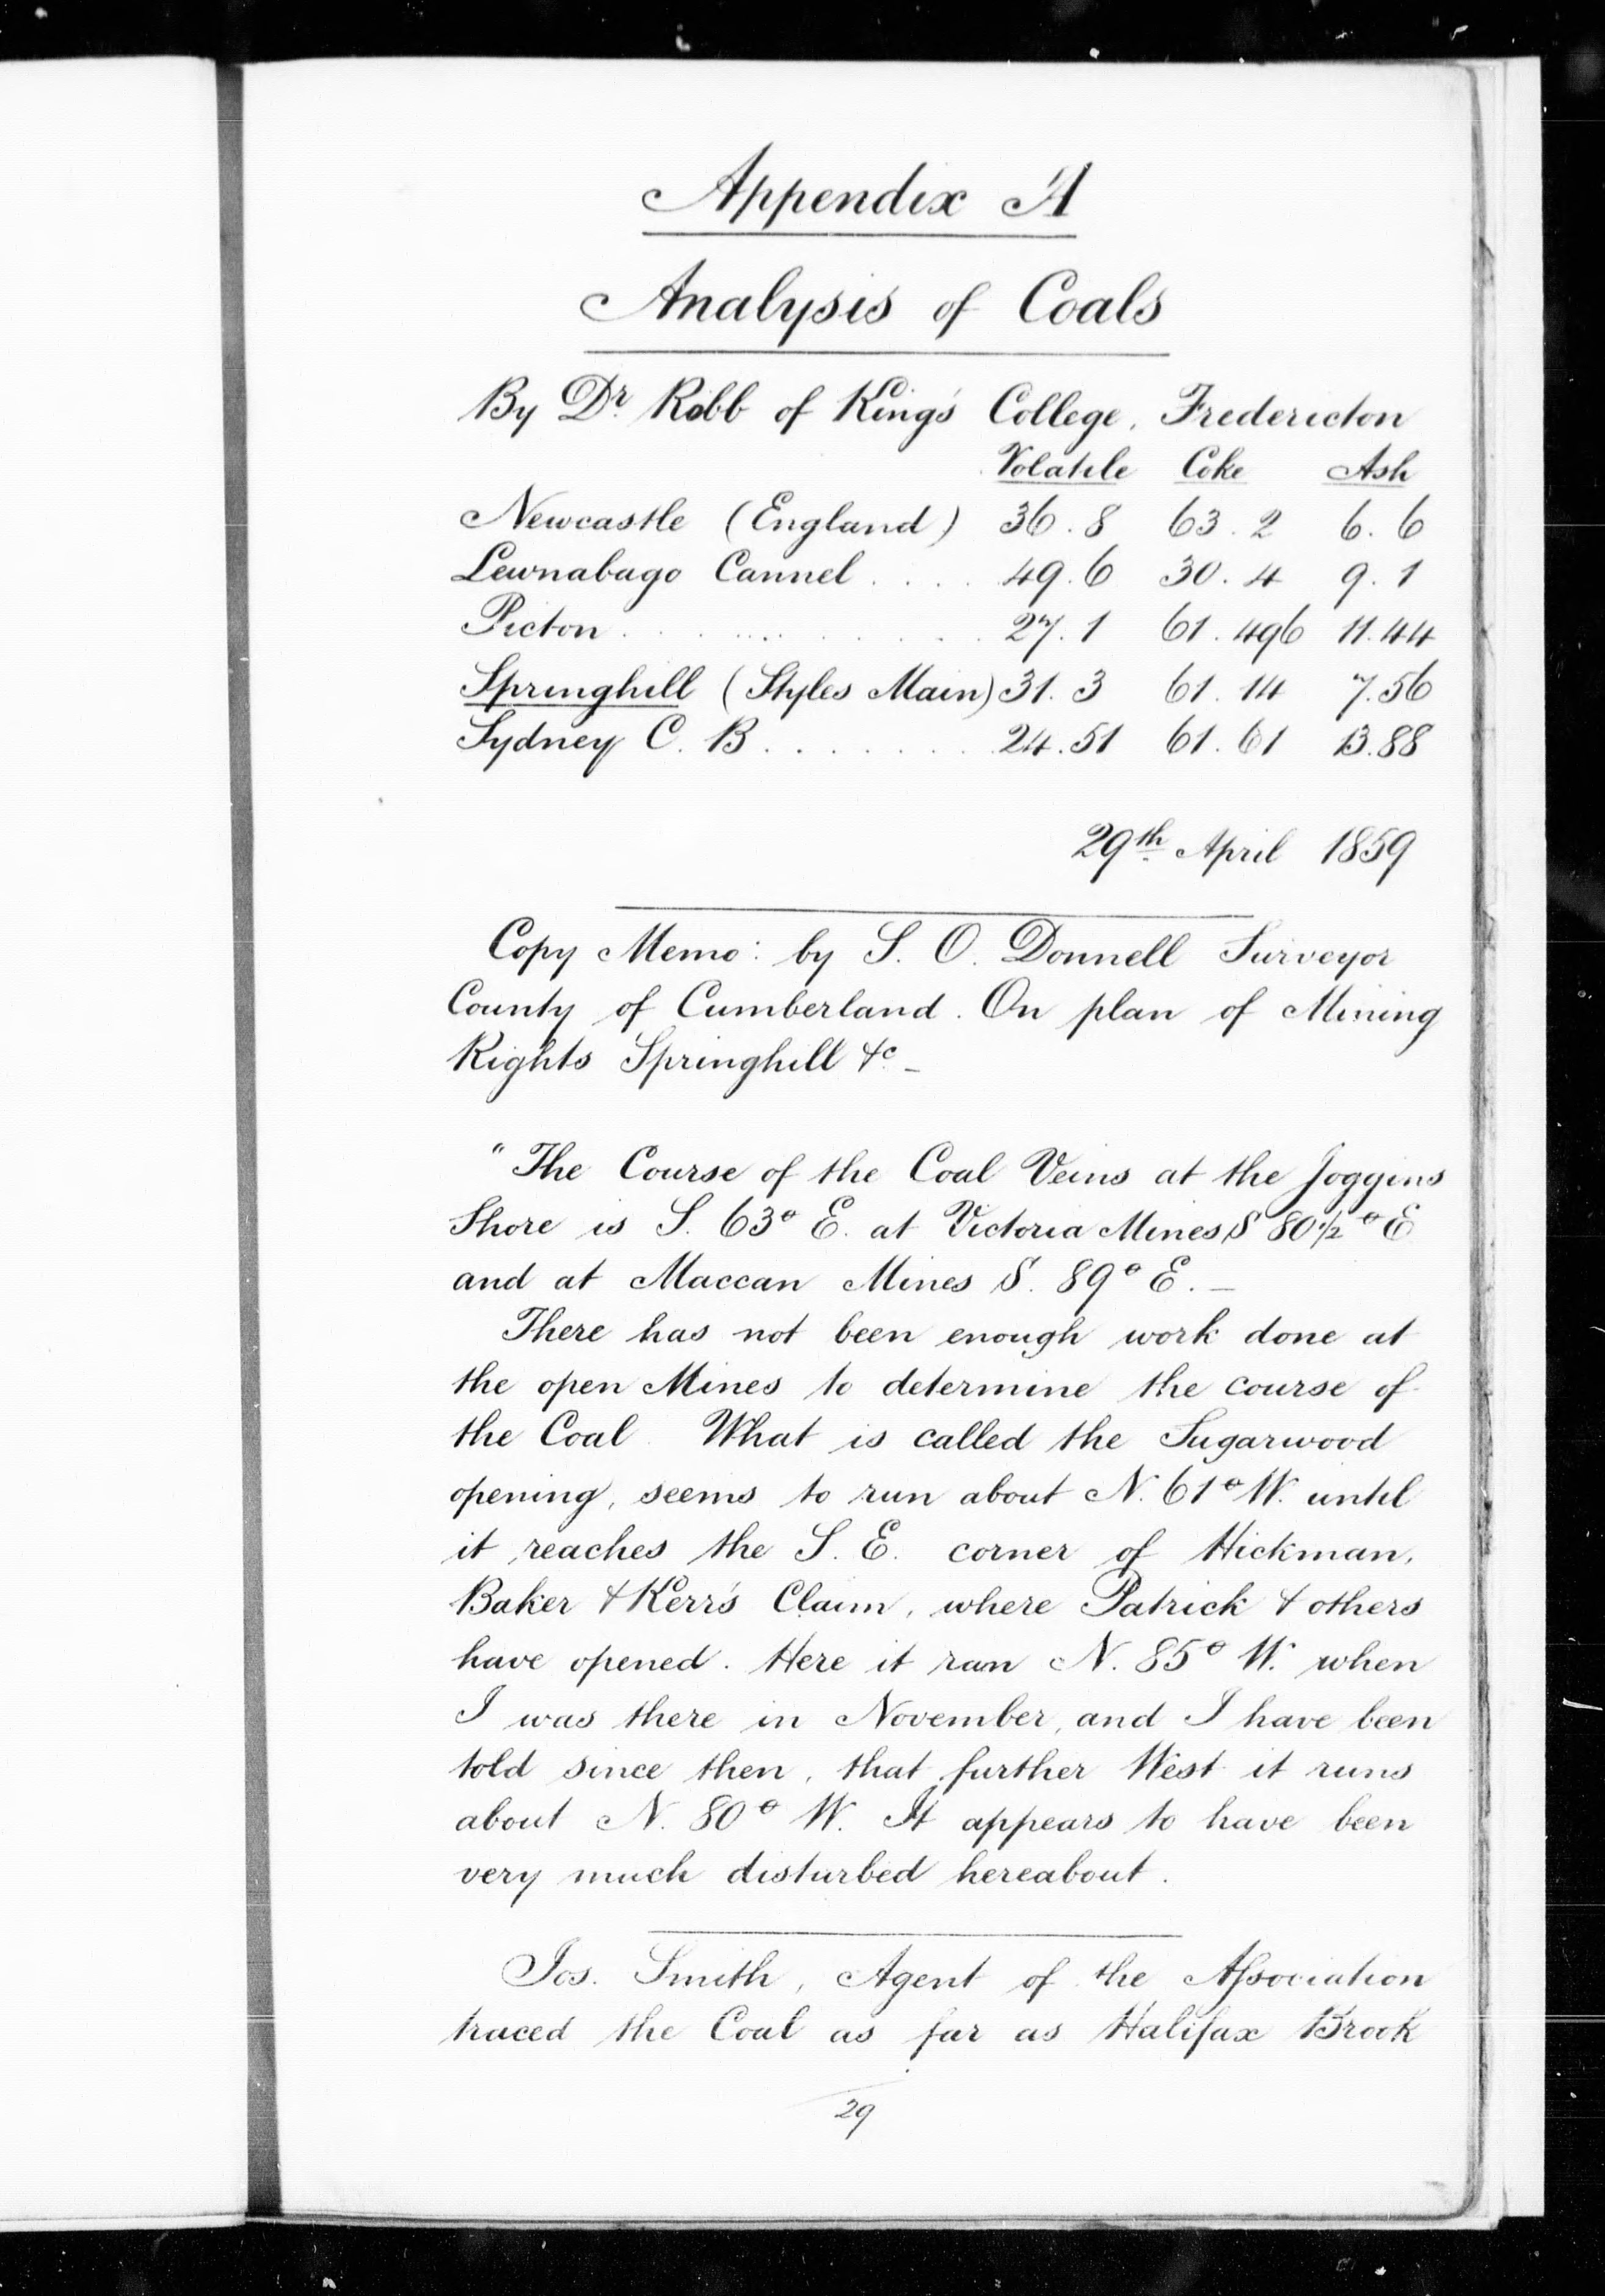 Appendix A
Analysis of Coals
By Dr. Robb of King's College, Fredericton
Volatile Coke Ash
Newcastle (England) 36.8 63.2 6.6
Lewnabago Cannel . . . . 49.6 30.4 9.1
Picton . . . . . . . . . . . . 27.1 61.496 11.44
Springhill (Styles Main) 31.3 61.14 7.56
Sydney C. B. . . . . . . . 24.51 61.61 13.88
29th April 1859
Copy Memo: by S. O. Donnell Surveyor
County of Cumberland. On plan of Mining
Rights Springhill &c. –
"The Course of the Coal Veins at the Joggins
Shore is S. 63° E. at Victoria Mines S 80½° E
and at Maccan Mines S. 89° E. –
There has not been enough work done at
the open Mines to determine the course of
the Coal. What is called the Sugarwood
opening, seems to run about N. 61° W. until
it reaches the S. E. corner of Hickman,
Baker & Kerr's Claim, where Patrick & others
have opened. Here it ran N. 85° W. when
I was there in November, and I have been
told since then, that further West it runs
about N. 80° W. It appears to have been
very much disturbed hereabout.
Jos. Smith, Agent of the Association
traced the Coal as far as Halifax Brook
29